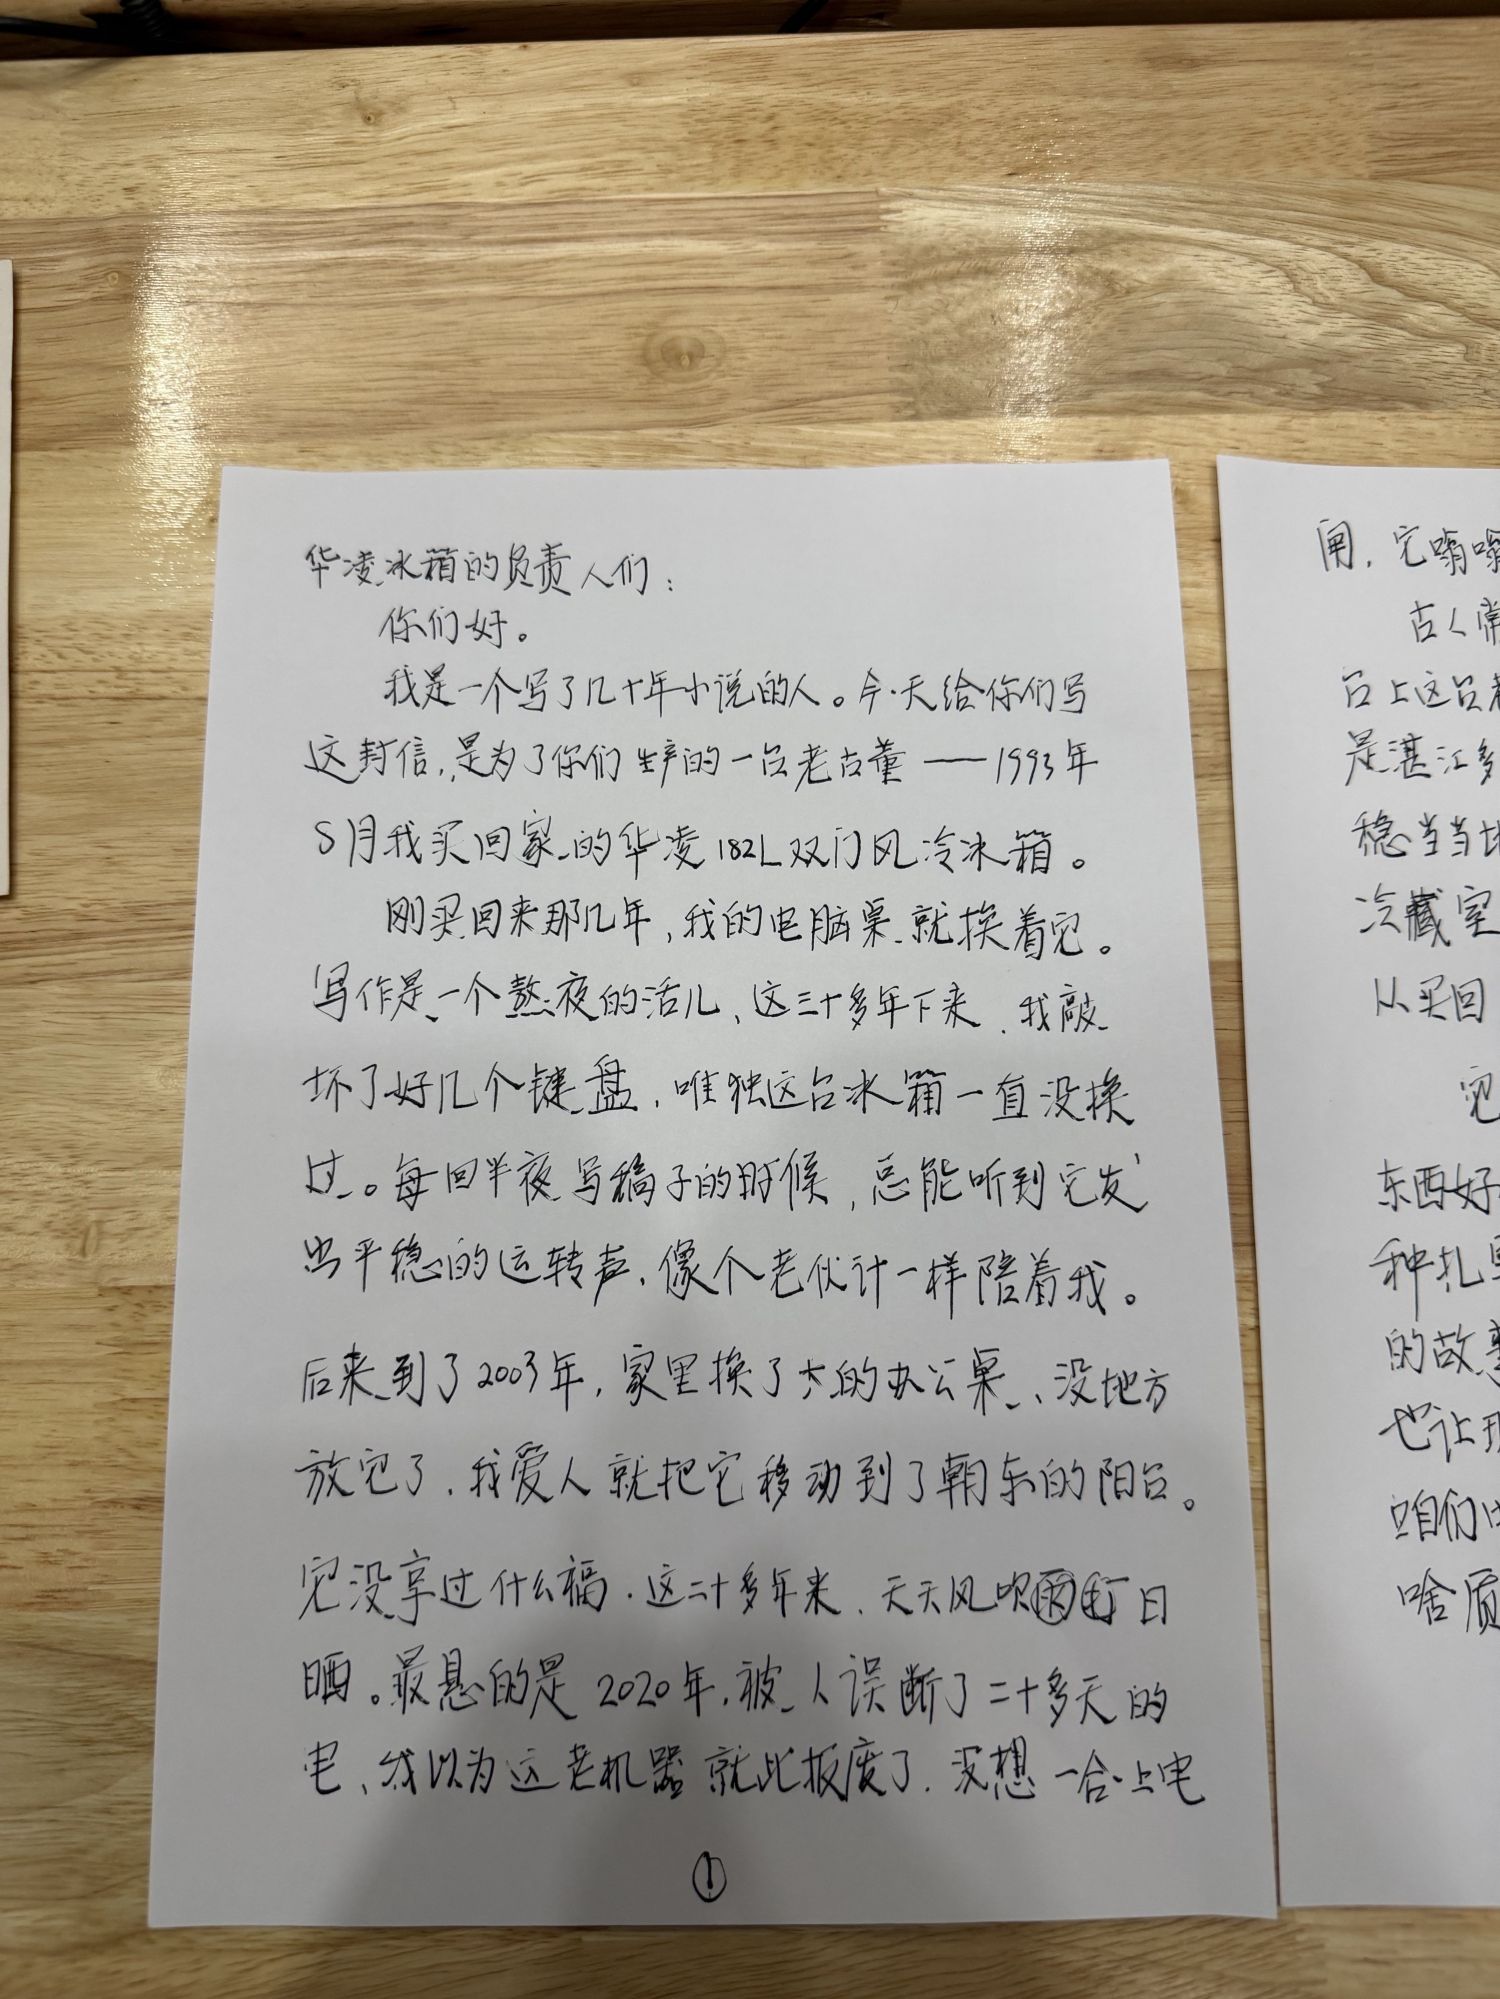 华凌冰箱的负责人们：
你们好。
我是一个写了几十年小说的人。今天给你们写
这封信，是为了你们生产的一台老古董——1993年
5月我买回家的华凌182L双门风冷冰箱。
刚买回来那几年，我的电脑桌就挨着它。
写作是一个熬夜的活儿、这三十多年下来，我敲
坏了好几个键盘，唯独这台冰箱一直没换
过。每回半夜写稿子的时候，总能听到它发
出平稳的运转声，像个老伙计一样陪着我。
后来到了2003年，家里换了大的办公桌、没地方
放它了，我爱人就把它移动到了朝东的阳台。
它没享过什么福．这二十多年来、天天风吹雨打日
晒。最悬的是2020年，被人误断了二十多天的
电、我以为这老机器就此报废了．没想一合上电
①
闸，它嗡嗡
古人常
台上这台老
是湛江多
稳当当地
冷藏室
从买回
它
东西好
种扎
的故事
也让
咱们
啥质